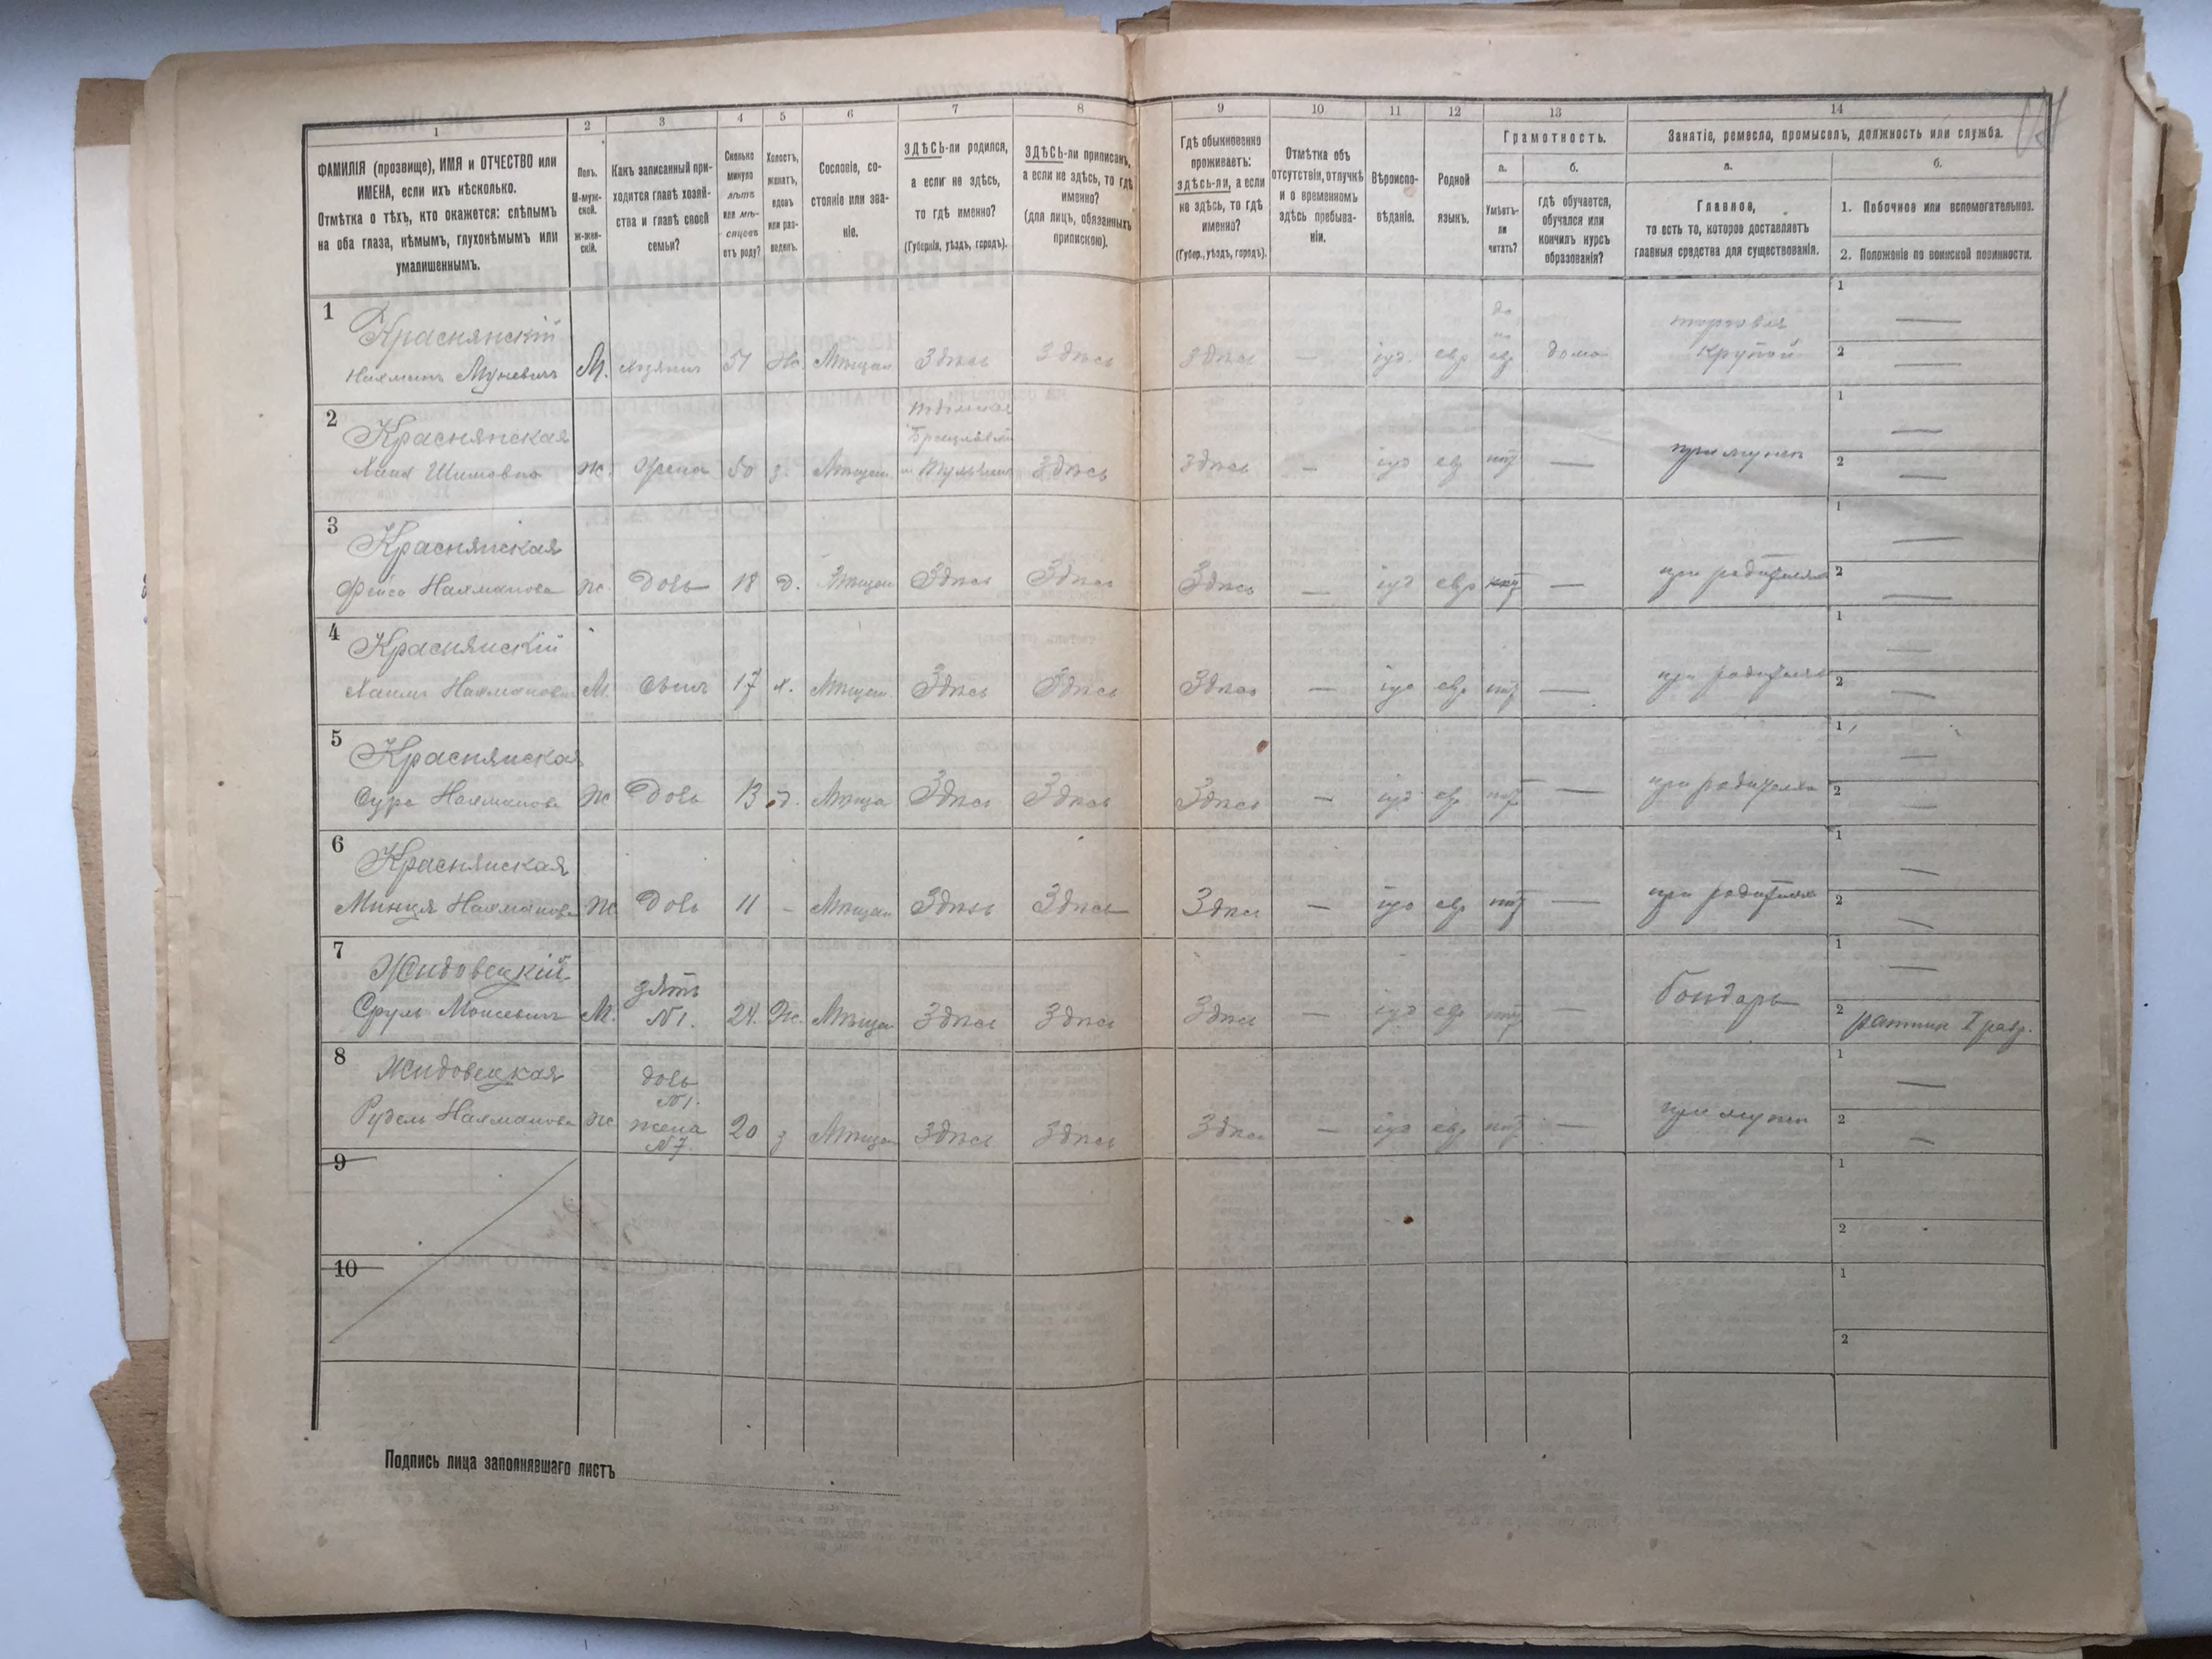 1
2
3
4
5
6
7
8
9
10
11
12
13
14
ФАМИЛІЯ (прозвище), ИМЯ и ОТЧЕСТВО или
ИМЕНА, если ихъ нѣсколько.
Отмѣтка о тѣхъ, кто окажется: слѣпымъ
на оба глаза, нѣмымъ, глухонѣмымъ или
умалишеннымъ.
Полъ.
М-муж-
ской.
Ж-жен-
скій.
Какъ записанный при-
ходится главѣ хозяй-
ства и главѣ своей
семьи?
Сколько
минуло
лѣтъ
или мѣ-
сяцевъ
отъ роду?
Холостъ,
женатъ,
вдовъ
или раз-
веденъ.
Сословіе, со-
стояніе или зва-
ніе.
ЗДѢСЬ-ли родился,
а если не здѣсь,
то гдѣ именно?
(Губернія, уѣздъ, городъ).
ЗДѢСЬ-ли приписанъ,
а если не здѣсь, то гдѣ
именно?
(для лицъ, обязанныхъ
припискою).
Гдѣ обыкновенно
проживаетъ:
здѣсь-ли, а если
не здѣсь, то гдѣ
именно?
(Губер., уѣздъ, городъ).
Отмѣтка объ
отсутствіи, отлучкѣ
и о временномъ
здѣсь пребыва-
ніи.
Вѣроиспо-
вѣданіе.
Родной
языкъ.
Грамотность.
а.
Умѣетъ-
ли
читать?
б.
гдѣ обучается,
обучался или
кончилъ курсъ
образованія?
Занятіе, ремесло, промыселъ, должность или служба.
а.
Главное,
то есть то, которое доставляетъ
главныя средства для существованія.
б.
1. Побочное или вспомогательное.
2. Положеніе по воинской повинности.
1
Краснянскій
Нахманъ Муневичъ М. хозяинъ 51 Ж. Мѣщан Здѣсь Здѣсь Здѣсь — іуд. евр евр дома торговля крупой
1 —
2 —
2
Краснянская
Хана Шимовна ж. Жена 50 з. Мѣщан Здѣсь Здѣсь — іуд евр нѣт — при мужѣ
1 —
2 —
3
Краснянская
Фейга Нахманова ж. Дочь 18 д. Мѣщан Здѣсь Здѣсь Здѣсь — іуд евр нѣт — при родителях
1 —
2 —
4
Краснянскій
Хаимъ Нахманович М. Сынъ 17 х. Мѣщан. Здѣсь Здѣсь Здѣсь — іуд евр нѣт — при родителях
1 —
2 —
5
Краснянская
Сура Нахманова Ж Дочь 13 д. Мѣща Здѣсь Здѣсь Здѣсь — іуд евр нѣт — при родителях
1 —
2 —
6
Краснянская
Минця Нахманова Ж Дочь 11 - Мѣщан Здѣсь Здѣсь Здѣсь — іуд евр нѣт — при родителях
1 —
2 —
7
Жидовецкій
Сруль Моисеевич М. зять №1. 24. Ж. Мѣщан Здѣсь Здѣсь Здѣсь — іуд евр нѣт — бондарь
1 —
2 ратник I разр.
8
Жидовецкая
Рудель Нахманова ж дочь №1. жена №7. 20 з Мѣщан Здѣсь Здѣсь Здѣсь — іуд евр нѣт — при мужѣ
1 —
2 —
9
1
2
10
1
2
Подпись лица заполнявшаго листъ